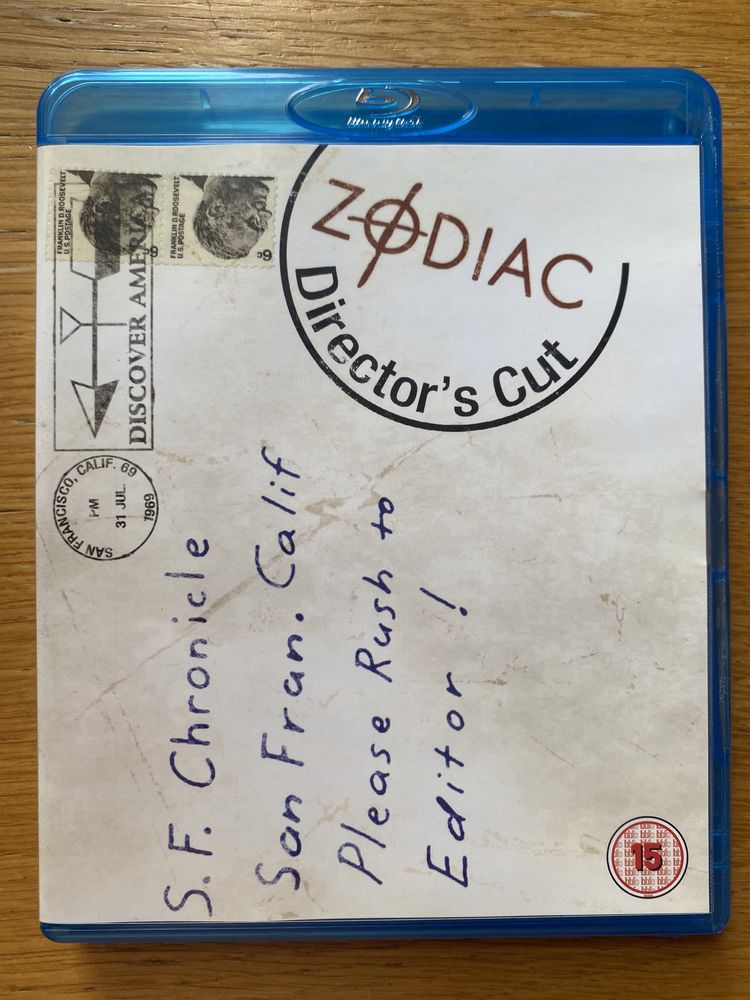 Blu-ray Disc
FRANKLIN D. ROOSEVELT
U.S. POSTAGE
6c
FRANKLIN D. ROOSEVELT
U.S. POSTAGE
6c
DISCOVER AMERICA
SAN FRANCISCO, CALIF. 69
PM
31 JUL.
1969
ZODIAC
Director's Cut
S.F. Chronicle
San Fran. Calif
Please Rush to
Editor !
15